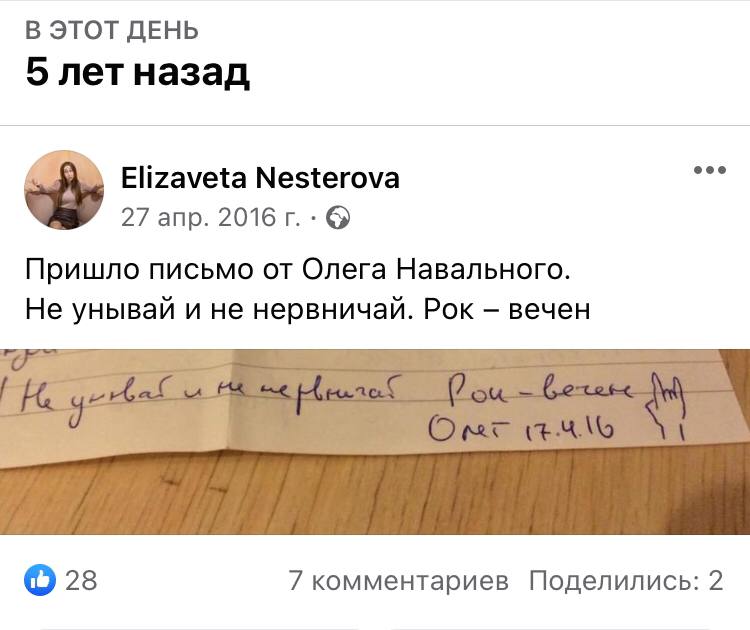 В ЭТОТ ДЕНЬ
5 лет назад
Elizaveta Nesterova
27 апр. 2016 г. ·
Пришло письмо от Олега Навального.
Не унывай и не нервничай. Рок – вечен
Не унывай и не нервничай Рок – вечен
Олег 17.4.16
28
7 комментариев Поделились: 2